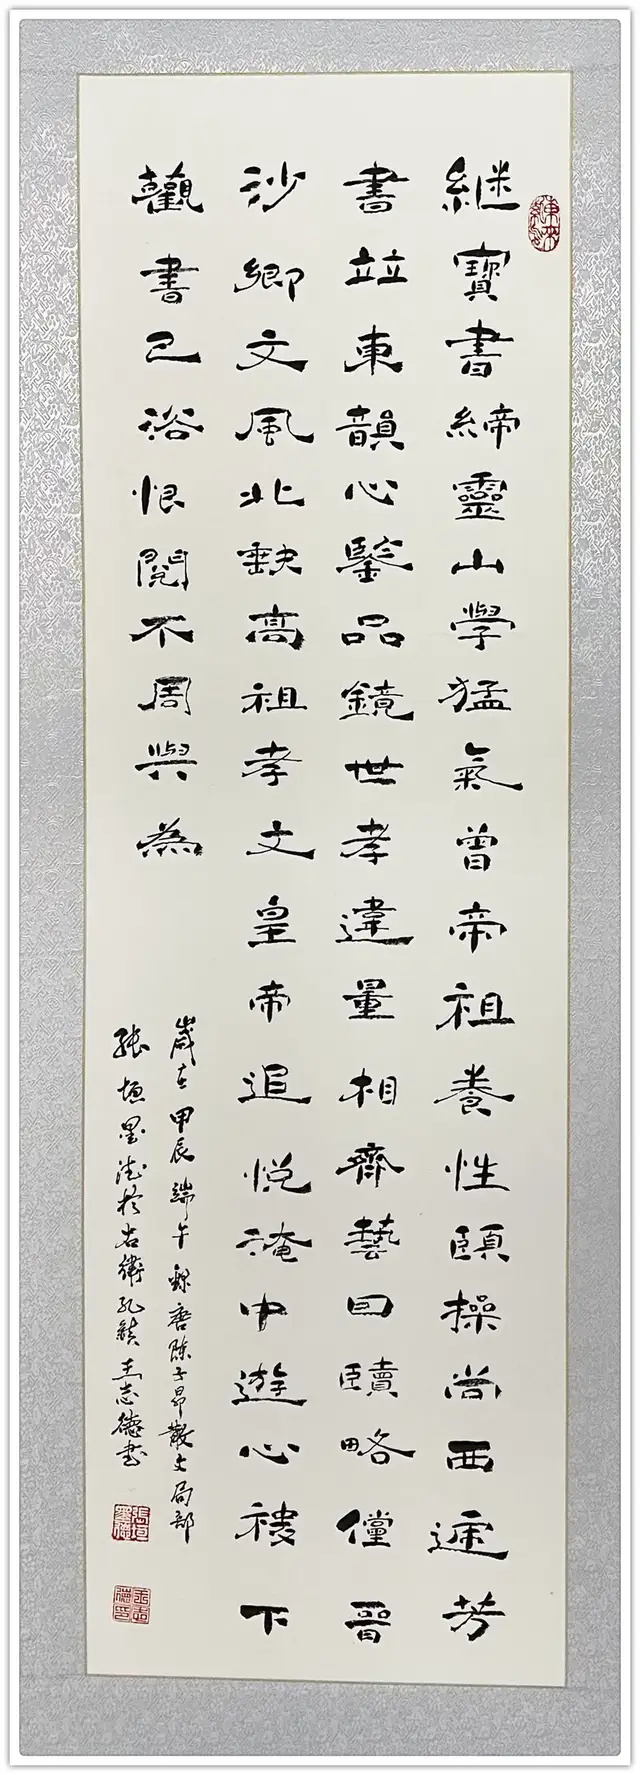 継寶書締靈山學猛氣曾帝祖養性頤操尚西遞芳
書並東韻心鑒品鏡世孝違量相齊藝曰賾略儻晉
沙鄉文風北缺高祖孝文皇帝追悅淹中遊心稷下
觀書已浴恨閱不周與為
歲在甲辰端午錄唐陈子昂散文局部
張垣墨德於右衛孔鎮王志德书